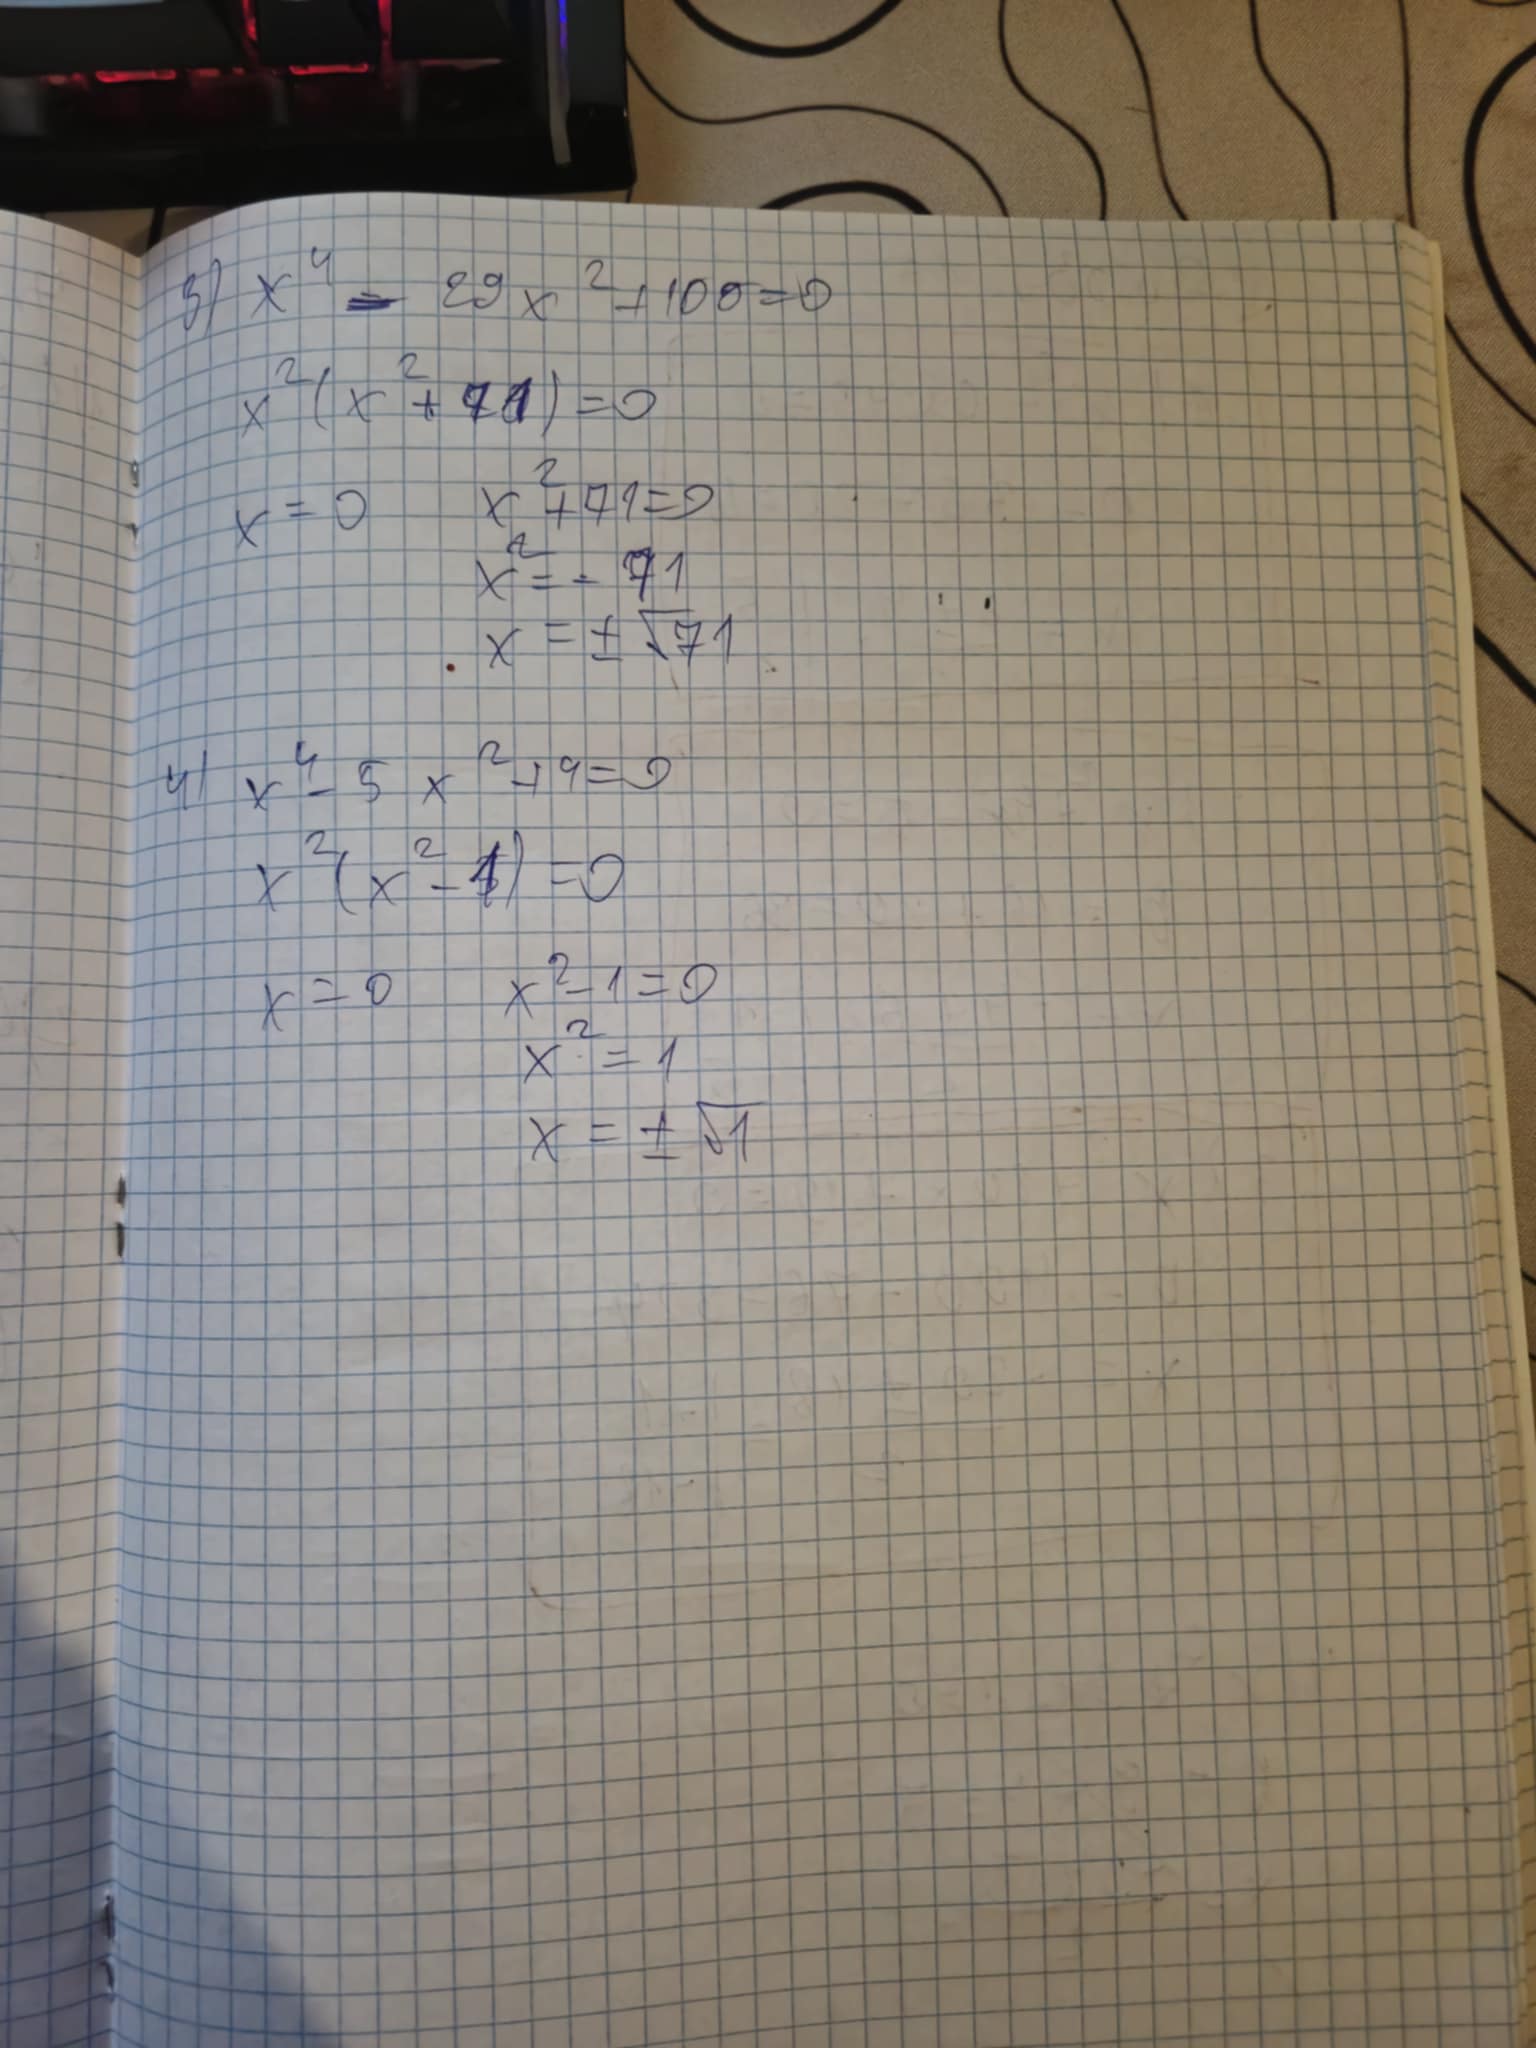 3) x⁴ - 29x² + 100 = 0
x²(x² + 71) = 0
x = 0 x² + 71 = 0
x² = - 71
x = ± √71
4) x⁴ - 5x² + 4 = 0
x²(x² - 1) = 0
x = 0 x² - 1 = 0
x² = 1
x = ± √1